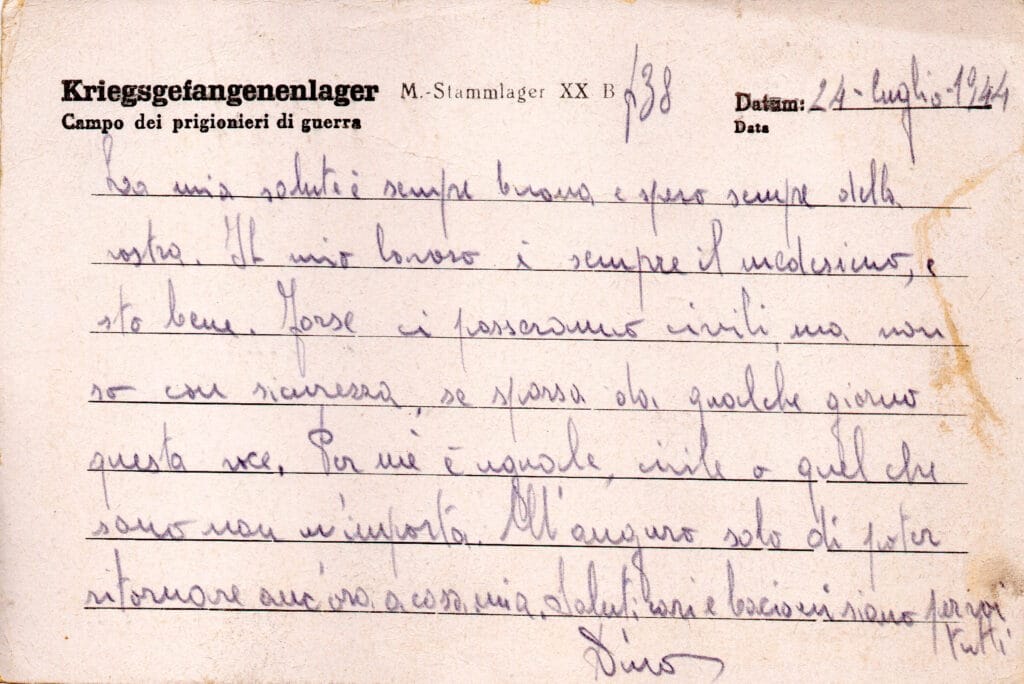 Kriegsgefangenenlager M.-Stammlager XX B 38 Datum: 24-luglio-1944
Campo dei prigionieri di guerra Data
La mia salute è sempre buona e spero sempre della
vostra. Il mio lavoro è sempre il medesimo, e
sto bene. Forse ci passeranno civili, ma non
so con sicurezza, se sparsa da qualche giorno
questa voce. Per me è uguale, civile o quel che
sono non m'importa. M'auguro solo di poter
ritornare ancora a casa mia. Saluti cari e bacioni siano per voi
tutti
Dino